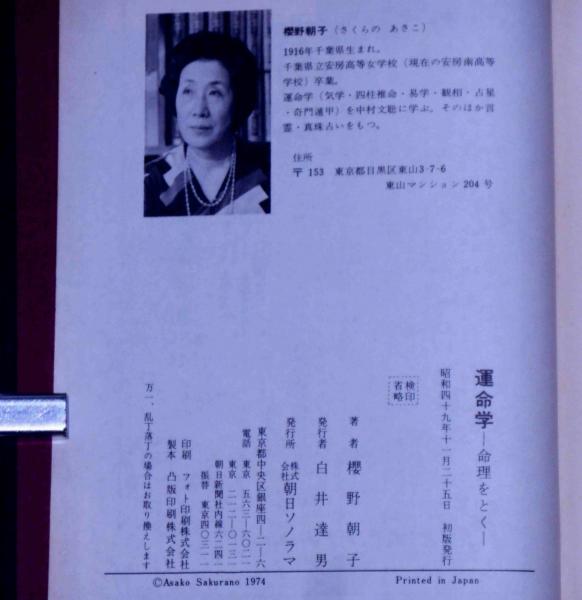 櫻野朝子(さくらの あさこ)
1916年千葉県生まれ。
千葉県立安房高等女学校(現在の安房南高等
学校)卒業。
運命学(気学・四柱推命・易学・観相・占星
・奇門遁甲)を中村文聡に学ぶ。そのほか言
霊・真珠占いをもつ。
住所
〒153 東京都目黒区東山3-7-6
東山マンション 204 号
運命学―命理をとく―
昭和四十九年十一月二十五日 初版発行
検印
省略
著者 櫻野朝子
発行者 白井達男
発行所 株式会社 朝日ソノラマ
東京都中央区銀座四―二―六
電話 東京 五六三―六〇二一
東京 二一二―〇一三一
朝日新聞社内線六二四一
振替 東京四〇三一一
印刷 フォト印刷株式会社
製本 凸版印刷株式会社
万一、乱丁落丁の場合はお取り換えします
©Asako Sakurano 1974
Printed in Japan